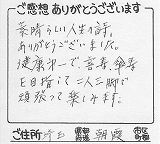 ご感想ありがとうございます
素晴らしい人生の詩。
ありがとうございました。
健康第一で、喜寿 傘寿
を目指して二人三脚で
頑張って楽しみます。
ご住所 埼玉 都道府県 朝霞 市区町村